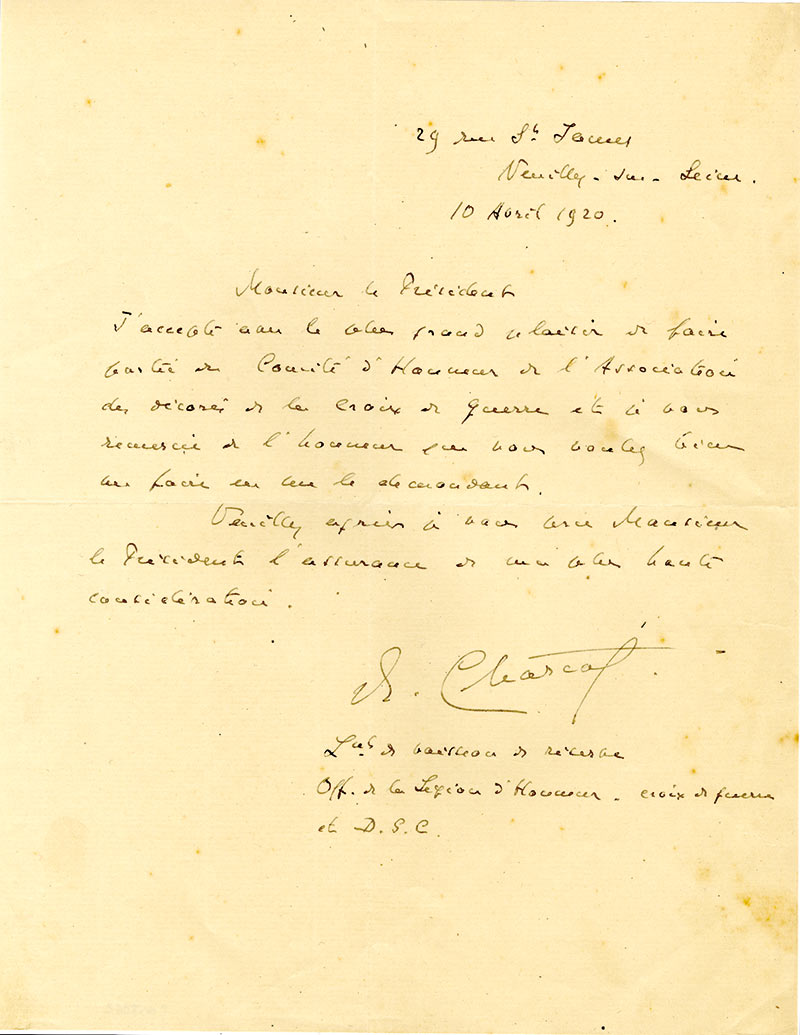 29 rue St James
Neuilly-sur-Seine.
10 Avril 1920.
Monsieur le Président
J'accepte avec le plus grand plaisir de faire
partie du Comité d'Honneur de l'Association
des décorés de la Croix de Guerre et à vous
remercie de l'honneur que vous voulez bien
me faire en me le demandant.
Veuillez agréer je vous prie Monsieur
le Président l'assurance de ma plus haute
considération.
Charcot
Lnt de vaisseau de réserve
Off. de la Légion d'Honneur. croix de guerre
et D.S.C.